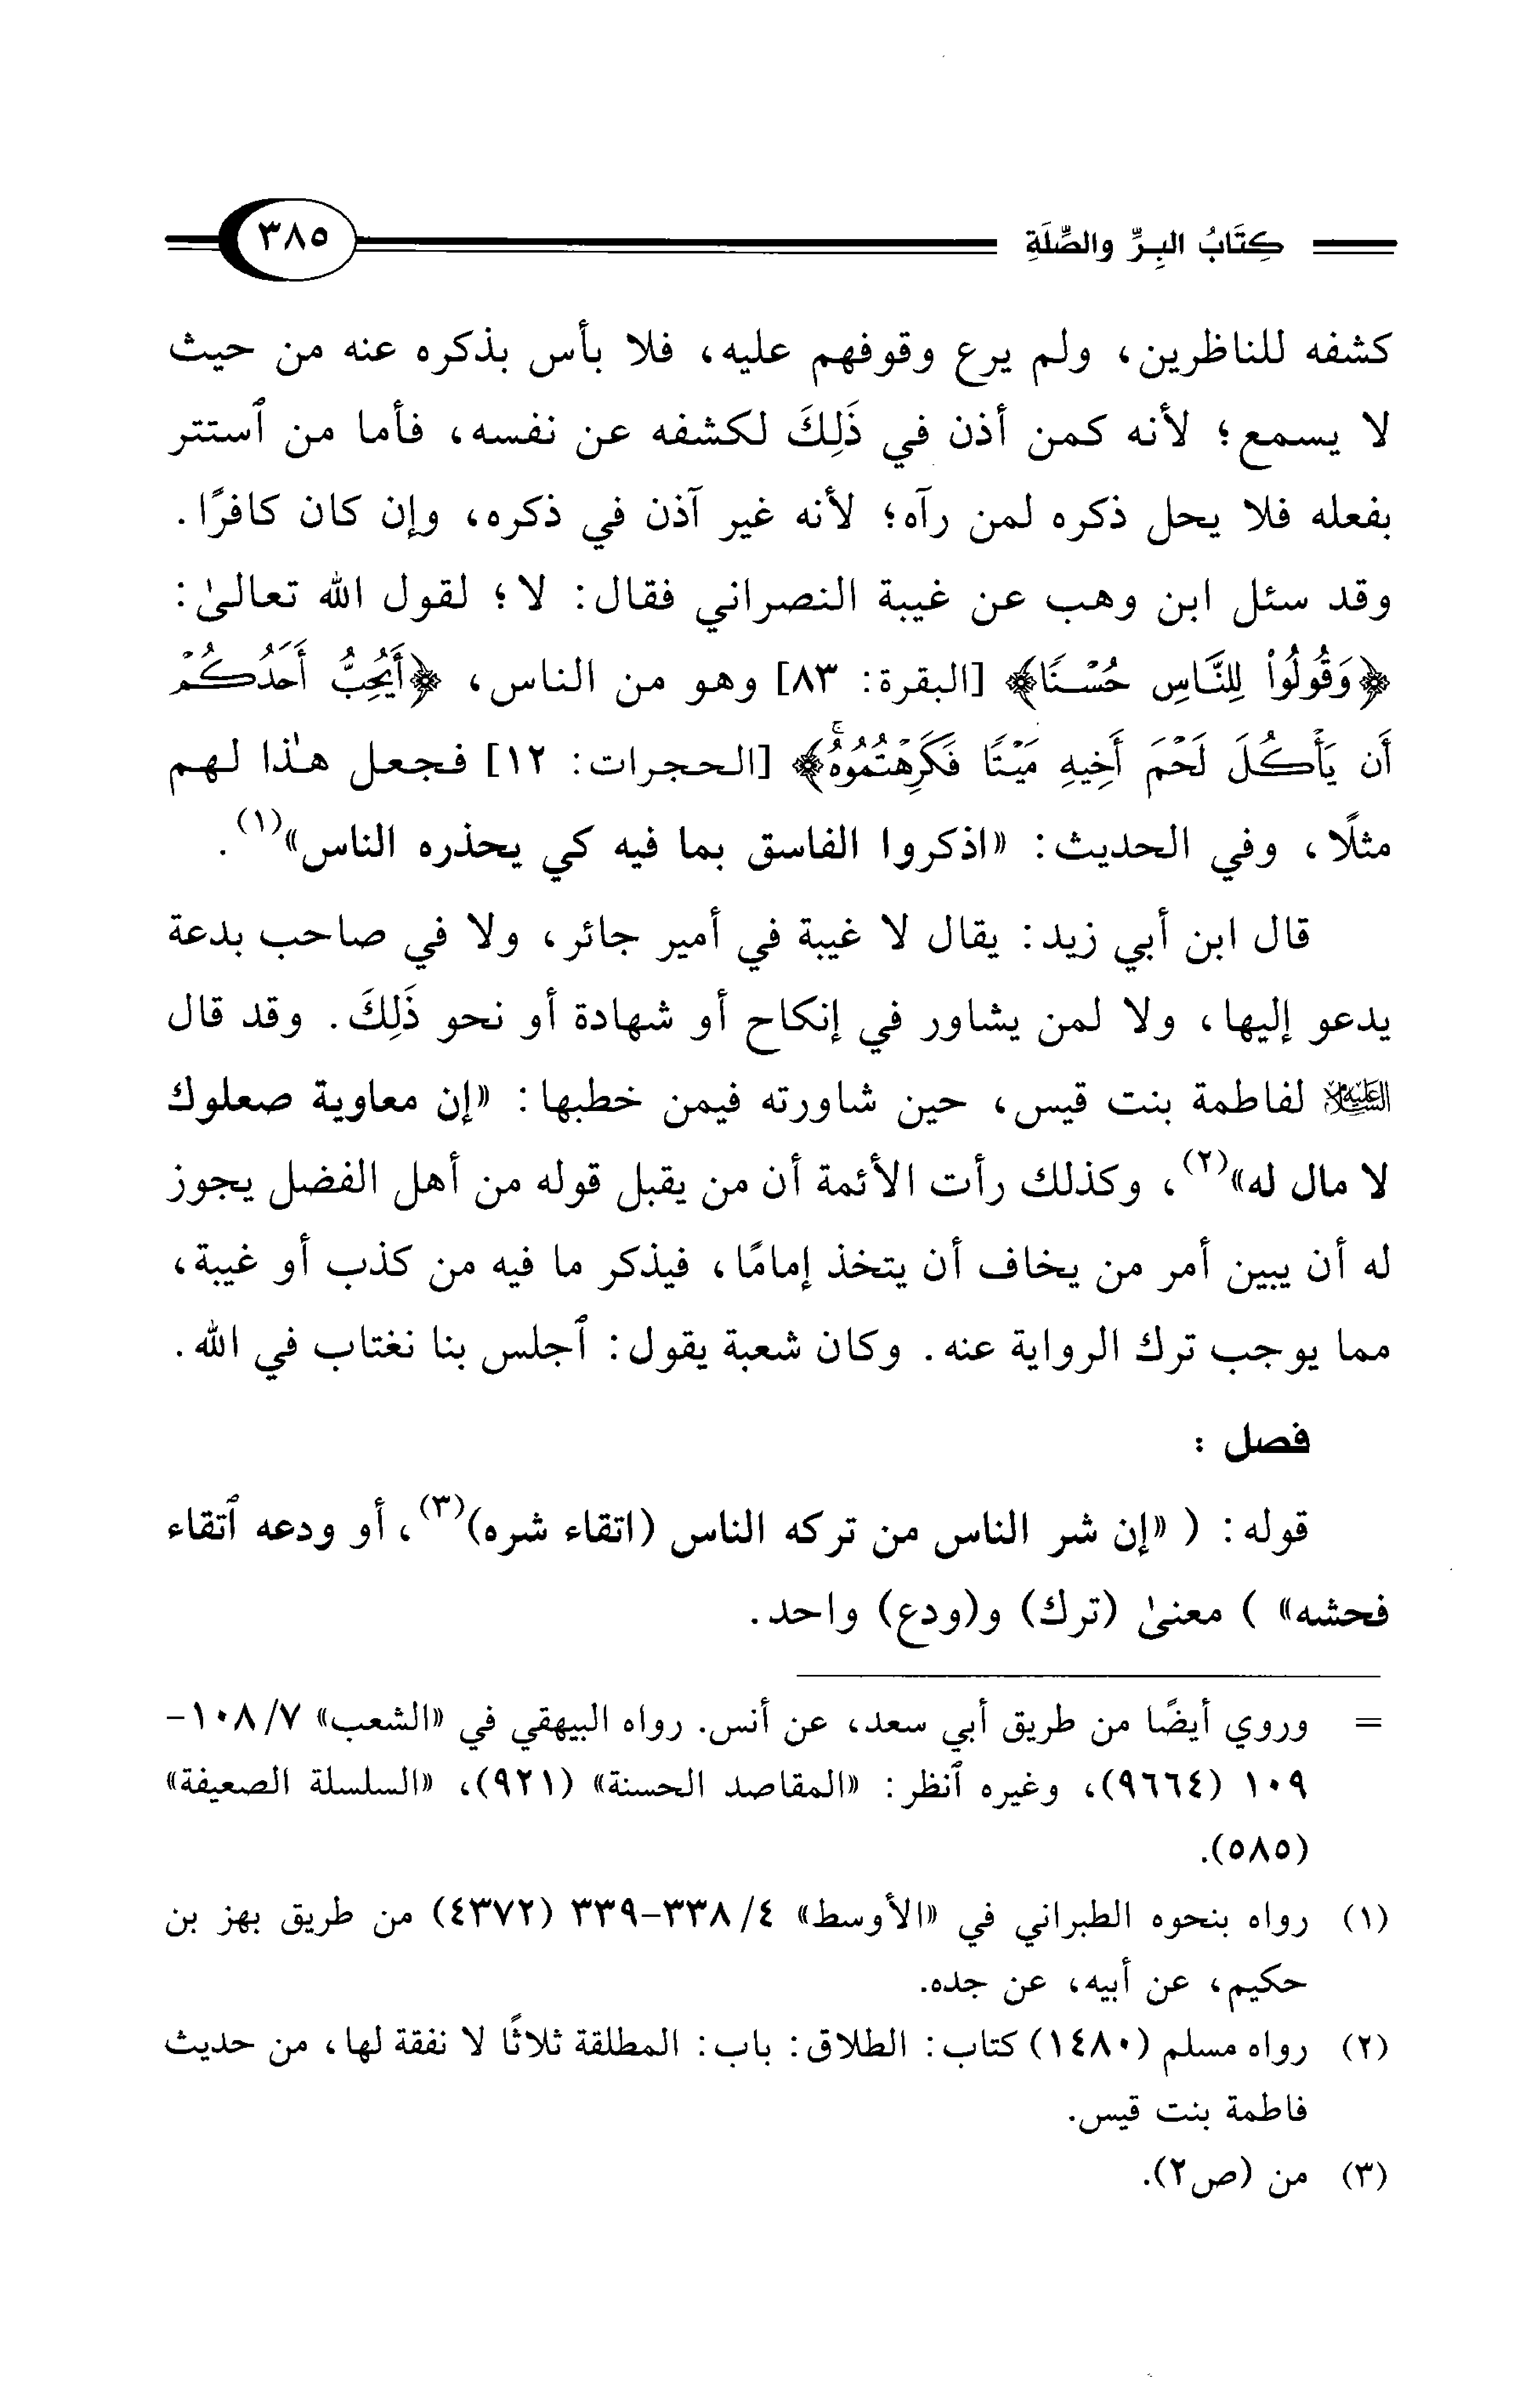 كِتَابُ البِرِّ والصِّلَةِ ٣٨٥
كشفه للناظرين، ولم يرع وقوفهم عليه، فلا بأس بذكره عنه من حيث
لا يسمع؛ لأنه كمن أذن في ذَلِكَ لكشفه عن نفسه، فأما من ٱستتر
بفعله فلا يحل ذكره لمن رآه؛ لأنه غير آذن في ذكره، وإن كان كافرًا.
وقد سئل ابن وهب عن غيبة النصراني فقال: لا؛ لقول الله تعالىٰ:
﴿وَقُولُوا۟ لِلنَّاسِ حُسْنًا﴾ [البقرة: ٨٣] وهو من الناس، ﴿أَيُحِبُّ أَحَدُكُمْ
أَن يَأْكُلَ لَحْمَ أَخِيهِ مَيْتًا فَكَرِهْتُمُوهُۚ﴾ [الحجرات: ١٢] فجعل هذا لهم
مثلًا، وفي الحديث: «اذكروا الفاسق بما فيه كي يحذره الناس»(١).
قال ابن أبي زيد: يقال لا غيبة في أمير جائر، ولا في صاحب بدعة
يدعو إليها، ولا لمن يشاور في إنكاح أو شهادة أو نحو ذَلِكَ. وقد قال
عليه السلام لفاطمة بنت قيس، حين شاورته فيمن خطبها: «إن معاوية صعلوك
لا مال له»(٢)، وكذلك رأت الأئمة أن من يقبل قوله من أهل الفضل يجوز
له أن يبين أمر من يخاف أن يتخذ إمامًا، فيذكر ما فيه من كذب أو غيبة،
مما يوجب ترك الرواية عنه. وكان شعبة يقول: ٱجلس بنا نغتاب في الله.
فصل:
قوله: ( «إن شر الناس من تركه الناس (اتقاء شره)(٣)، أو ودعه ٱتقاء
فحشه» ) معنىٰ (ترك) و(ودع) واحد.
= وروي أيضًا من طريق أبي سعد، عن أنس. رواه البيهقي في «الشعب» ٧/ ١٠٨-
١٠٩ (٩٦٦٤)، وغيره ٱنظر: «المقاصد الحسنة» (٩٢١)، «السلسلة الضعيفة»
(٥٨٥).
(١) رواه بنحوه الطبراني في «الأوسط» ٤/ ٣٣٨-٣٣٩ (٤٣٧٢) من طريق بهز بن
حكيم، عن أبيه، عن جده.
(٢) رواه مسلم (١٤٨٠) كتاب: الطلاق: باب: المطلقة ثلاثًا لا نفقة لها، من حديث
فاطمة بنت قيس.
(٣) من (ص٢).